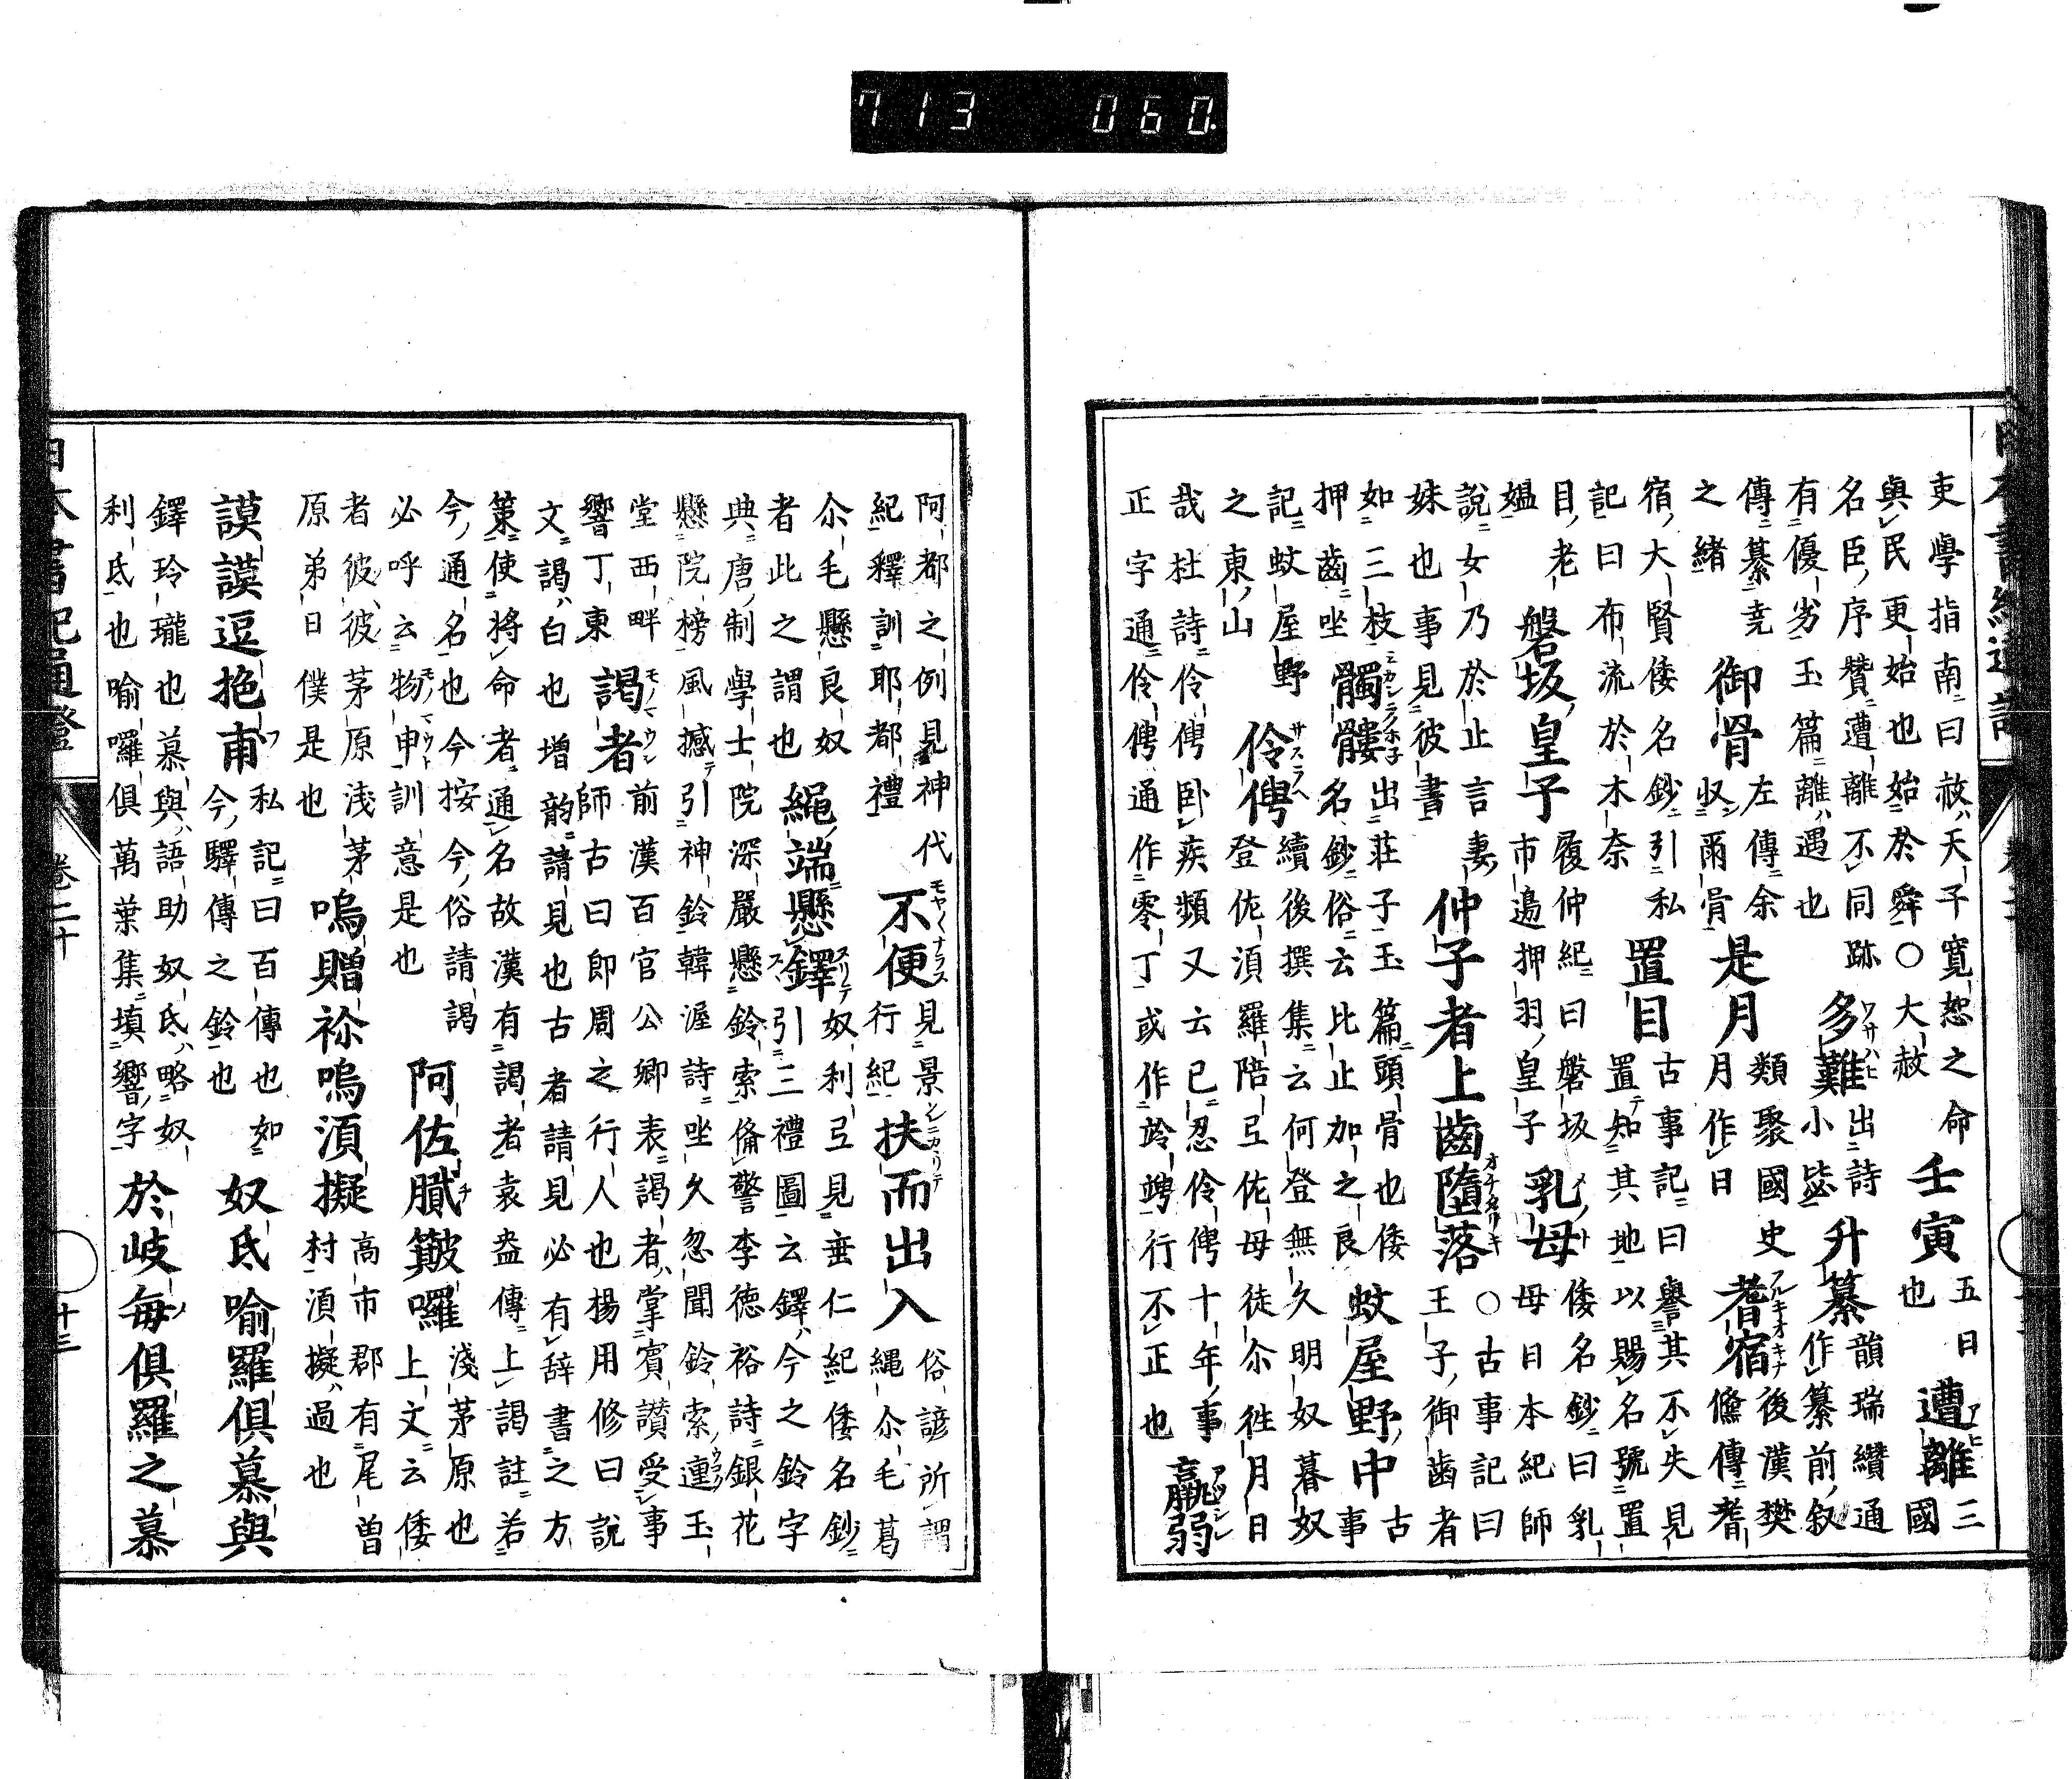 713 060.
吏學指南曰赦天子寛恕之命 壬寅 五日也 遭離 三國
與民更始也始於舜○大赦
名臣序贊遭離不同跡 多難 出詩小毖 升纂 韻瑞纘通作纂前叙
有優劣玉篇離遇也
傳纂尭之緒 御骨 左傳余収爾骨 是月 類聚國史月作日 耆宿 後漢樊儵傳耆
宿大賢倭名鈔引私記曰布流於木奈 置目 古事記曰譽其不失見置知其地以賜名號置
目老媼 磐坂皇子 履仲紀曰磐坂市邊押羽皇子 乳母 倭名鈔曰乳母日本紀師
説女乃於止言妻妹也事見彼書 仲子者上齒墮落 ○古事記曰王子御歯者
如三枝押齒坐 髑髏 出莊子玉篇頭骨也倭名鈔俗云比止加之良 蚊屋野中 古事
記蚊屋野之東山 伶俜 續後撰集云何登無久明奴暮奴登佐須羅陪弖佐母徒尒徃月日
哉杜詩伶俜卧疾頻又云已忍伶俜十年事 羸弱
正字通伶俜通作零丁或作竛竮行不正也
阿都之例見神代紀釋訓耶都禮 不便 見景行紀 扶而出入 俗諺所謂縄尒毛葛
尒毛懸良奴者此之謂也 繩端懸鐸 奴利弖見垂仁紀倭名鈔引三禮圖云鐸今之鈴字
典唐制學士院深嚴懸鈴索僃警李徳裕詩銀花
懸院榜風撼引神鈴韓渥詩坐久忽聞鈴索連玉
堂西畔響丁東 謁者 前漢百官公卿表謁者掌賓讃受事師古曰即周之行人也楊用修曰説
文謁白也増韵請見也古者請見必有辞書之方
策使將命者通名故漢有謁者袁盎傳上謁註若
今通名也今按今俗請謁必呼云物申訓意是也 阿佐膩簸囉 淺茅原也上文云倭
者彼彼茅原浅茅原弟日僕是也 嗚贈祢嗚湏擬 高市郡有尾曾村湏擬過也
謨謨逗拖甫 私記曰百傳也如今驛傳之鈴也 奴氐喻羅倶慕與
鐸玲瓏也慕與語助奴氐略奴利氐也喻囉倶萬葉集塡響字 於岐毎倶羅之慕
日本書紀通證 卷二十 十三